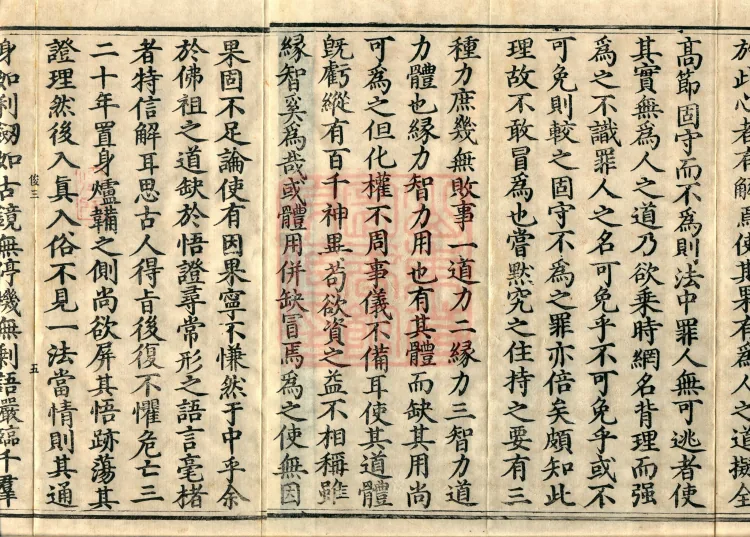 於此心者有解焉使其果有為人之道擬全
高節固守而不為則法中罪人無可逃者使
其實無為人之道乃欲乘時網名背理而强
為之不識罪人之名可免乎不可免乎或不
可免則較之固守不為之罪亦倍矣頗知此
理故不敢冒為也嘗黙究之住持之要有三
種力庶幾無敗事一道力二縁力三智力道
力體也縁力智力用也有其體而缺其用尚
可為之但化權不周事儀不備耳使其道體
旣虧縱有百千神異苟欲資之益不相稱雖
縁智奚為哉或體用併缺冒焉為之使無因
果固不足論使有因果寧不慊然于中乎余
於佛祖之道缺於悟證尋常形之語言毫楮
者特信解耳思古人得旨後復不懼危亡三
二十年置身爐鞴之側尚欲屏其悟跡蕩其
證理然後入眞入俗不見一法當情則其通
俊三 五
身如利劒如古鏡無停機無剩語嚴臨千羣